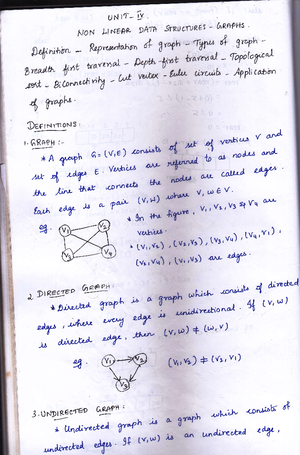 UNIT - IV
NON LINEAR DATA STRUCTURES - GRAPHS.
Definition - Representation of graph - Types of graph -
Breadth first traversal - Depth first traversal - Topological
sort - Biconnectivity - Cut vertex - Euler circuits - Application
of graphs.
DEFINITIONS:
1. GRAPH:-
* A graph G=(V,E) consists of set of vertices V and
set of edges E. Vertices are referred to as nodes and
the line that connects the nodes are called edges.
Each edge is a pair (V,W) where V, W ∈ V.
eg.
V1 V2
V3 V4
* In the figure, V1, V2, V3 & V4 are
vertices.
* (V1,V2), (V2,V3), (V3,V4), (V4,V1),
(V2,V4), (V1,V3) are edges.
2. DIRECTED GRAPH:
* Directed graph is a graph which consists of directed
edges, where every edge is unidirectional. If (V,W)
is directed edge, then (V,W) ≠ (W,V)
eg.
V1 V2
V3
(V1,V2) ≠ (V2,V1)
3. UNDIRECTED GRAPH:
* Undirected graph is a graph which consists of
undirected edges. If (V,W) is an undirected edge,